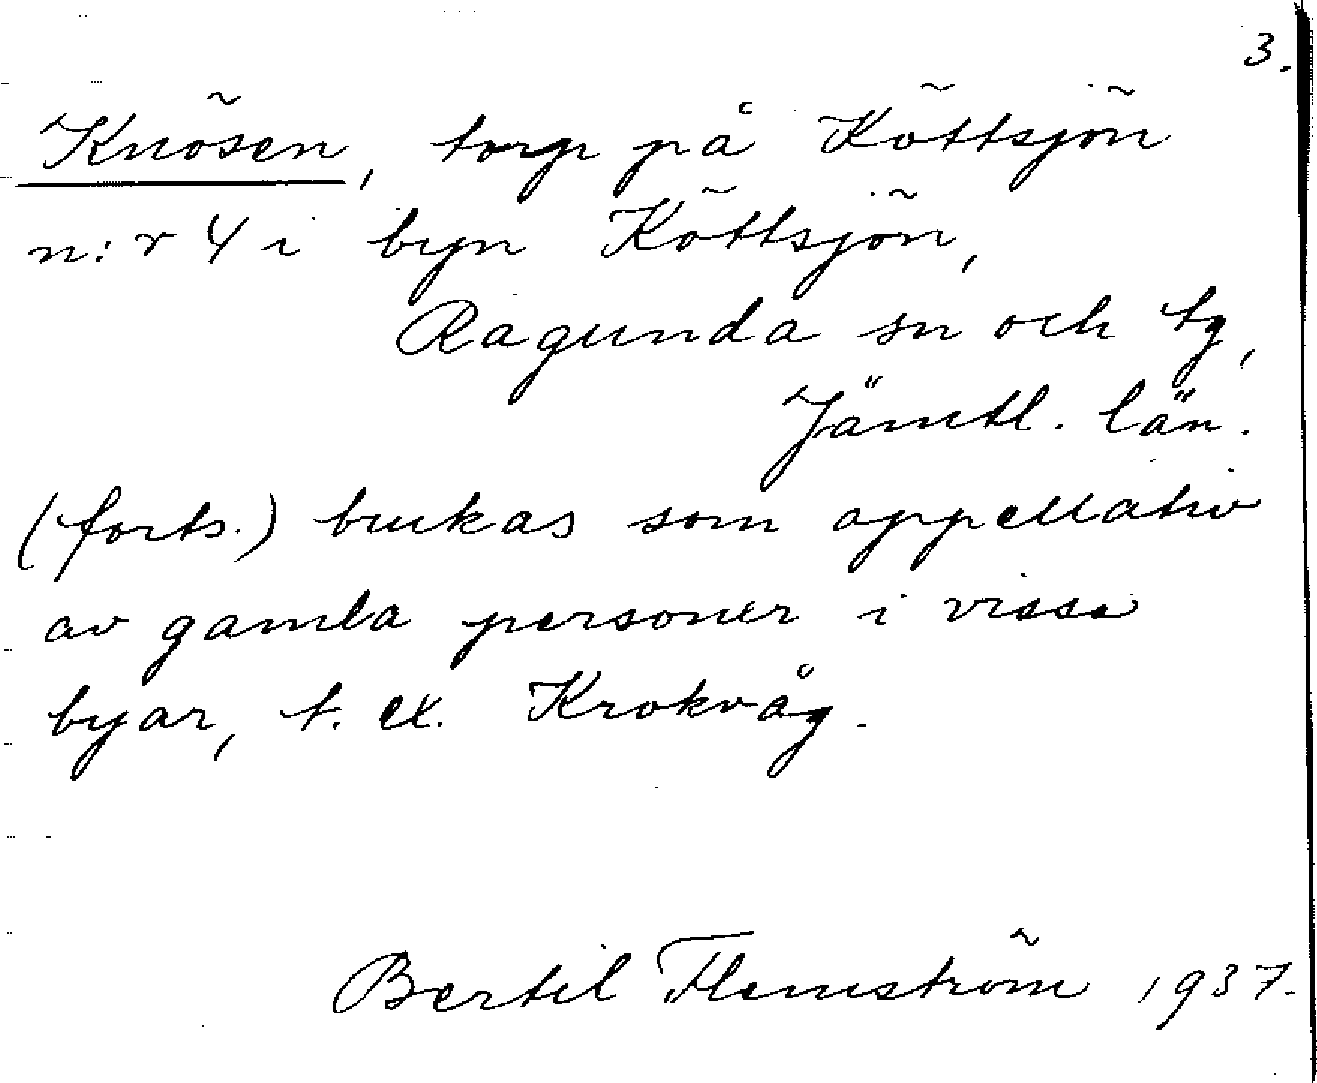 3.
Knösen, torp på Köttsjön
n:r 4 i byn Köttsjön,
Ragunda sn och tg,
Jämtl. län.
(forts.) brukas som appellativ
av gamla personer i vissa
byar, t. ex. Krokvåg.
Bertil Flemström 1937.